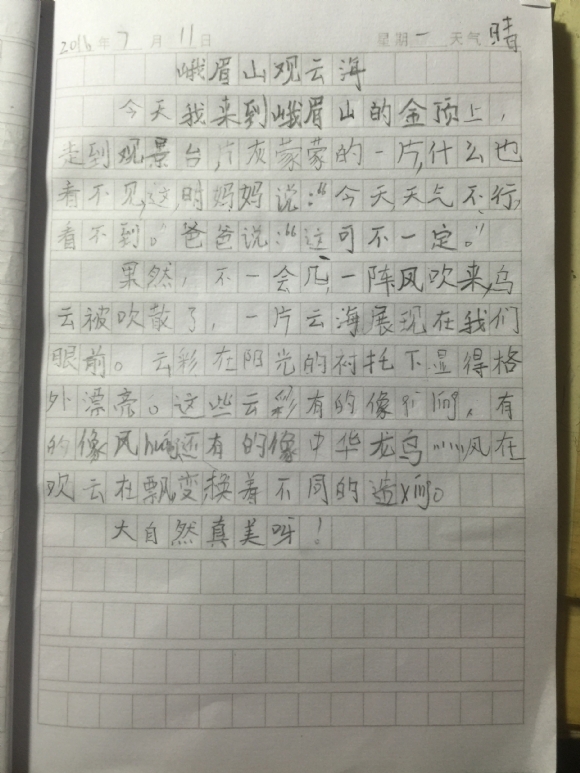 2016年7月11日 星期一 天气晴
峨眉山观云海
今天我来到峨眉山的金顶上，
走到观景台，片灰蒙蒙的一片，什么也
看不见，这时妈妈说：“今天天气不行，
看不到。”爸爸说：“这可不一定。”
果然，不一会儿，一阵风吹来，乌
云被吹散了，一片云海展现在我们
眼前。云彩在阳光的衬托下显得格
外漂亮。这些云彩有的像，有
的像风还有的像中华龙鸟……风在
吹云在飘变换着不同的造xíng。
大自然真美呀！